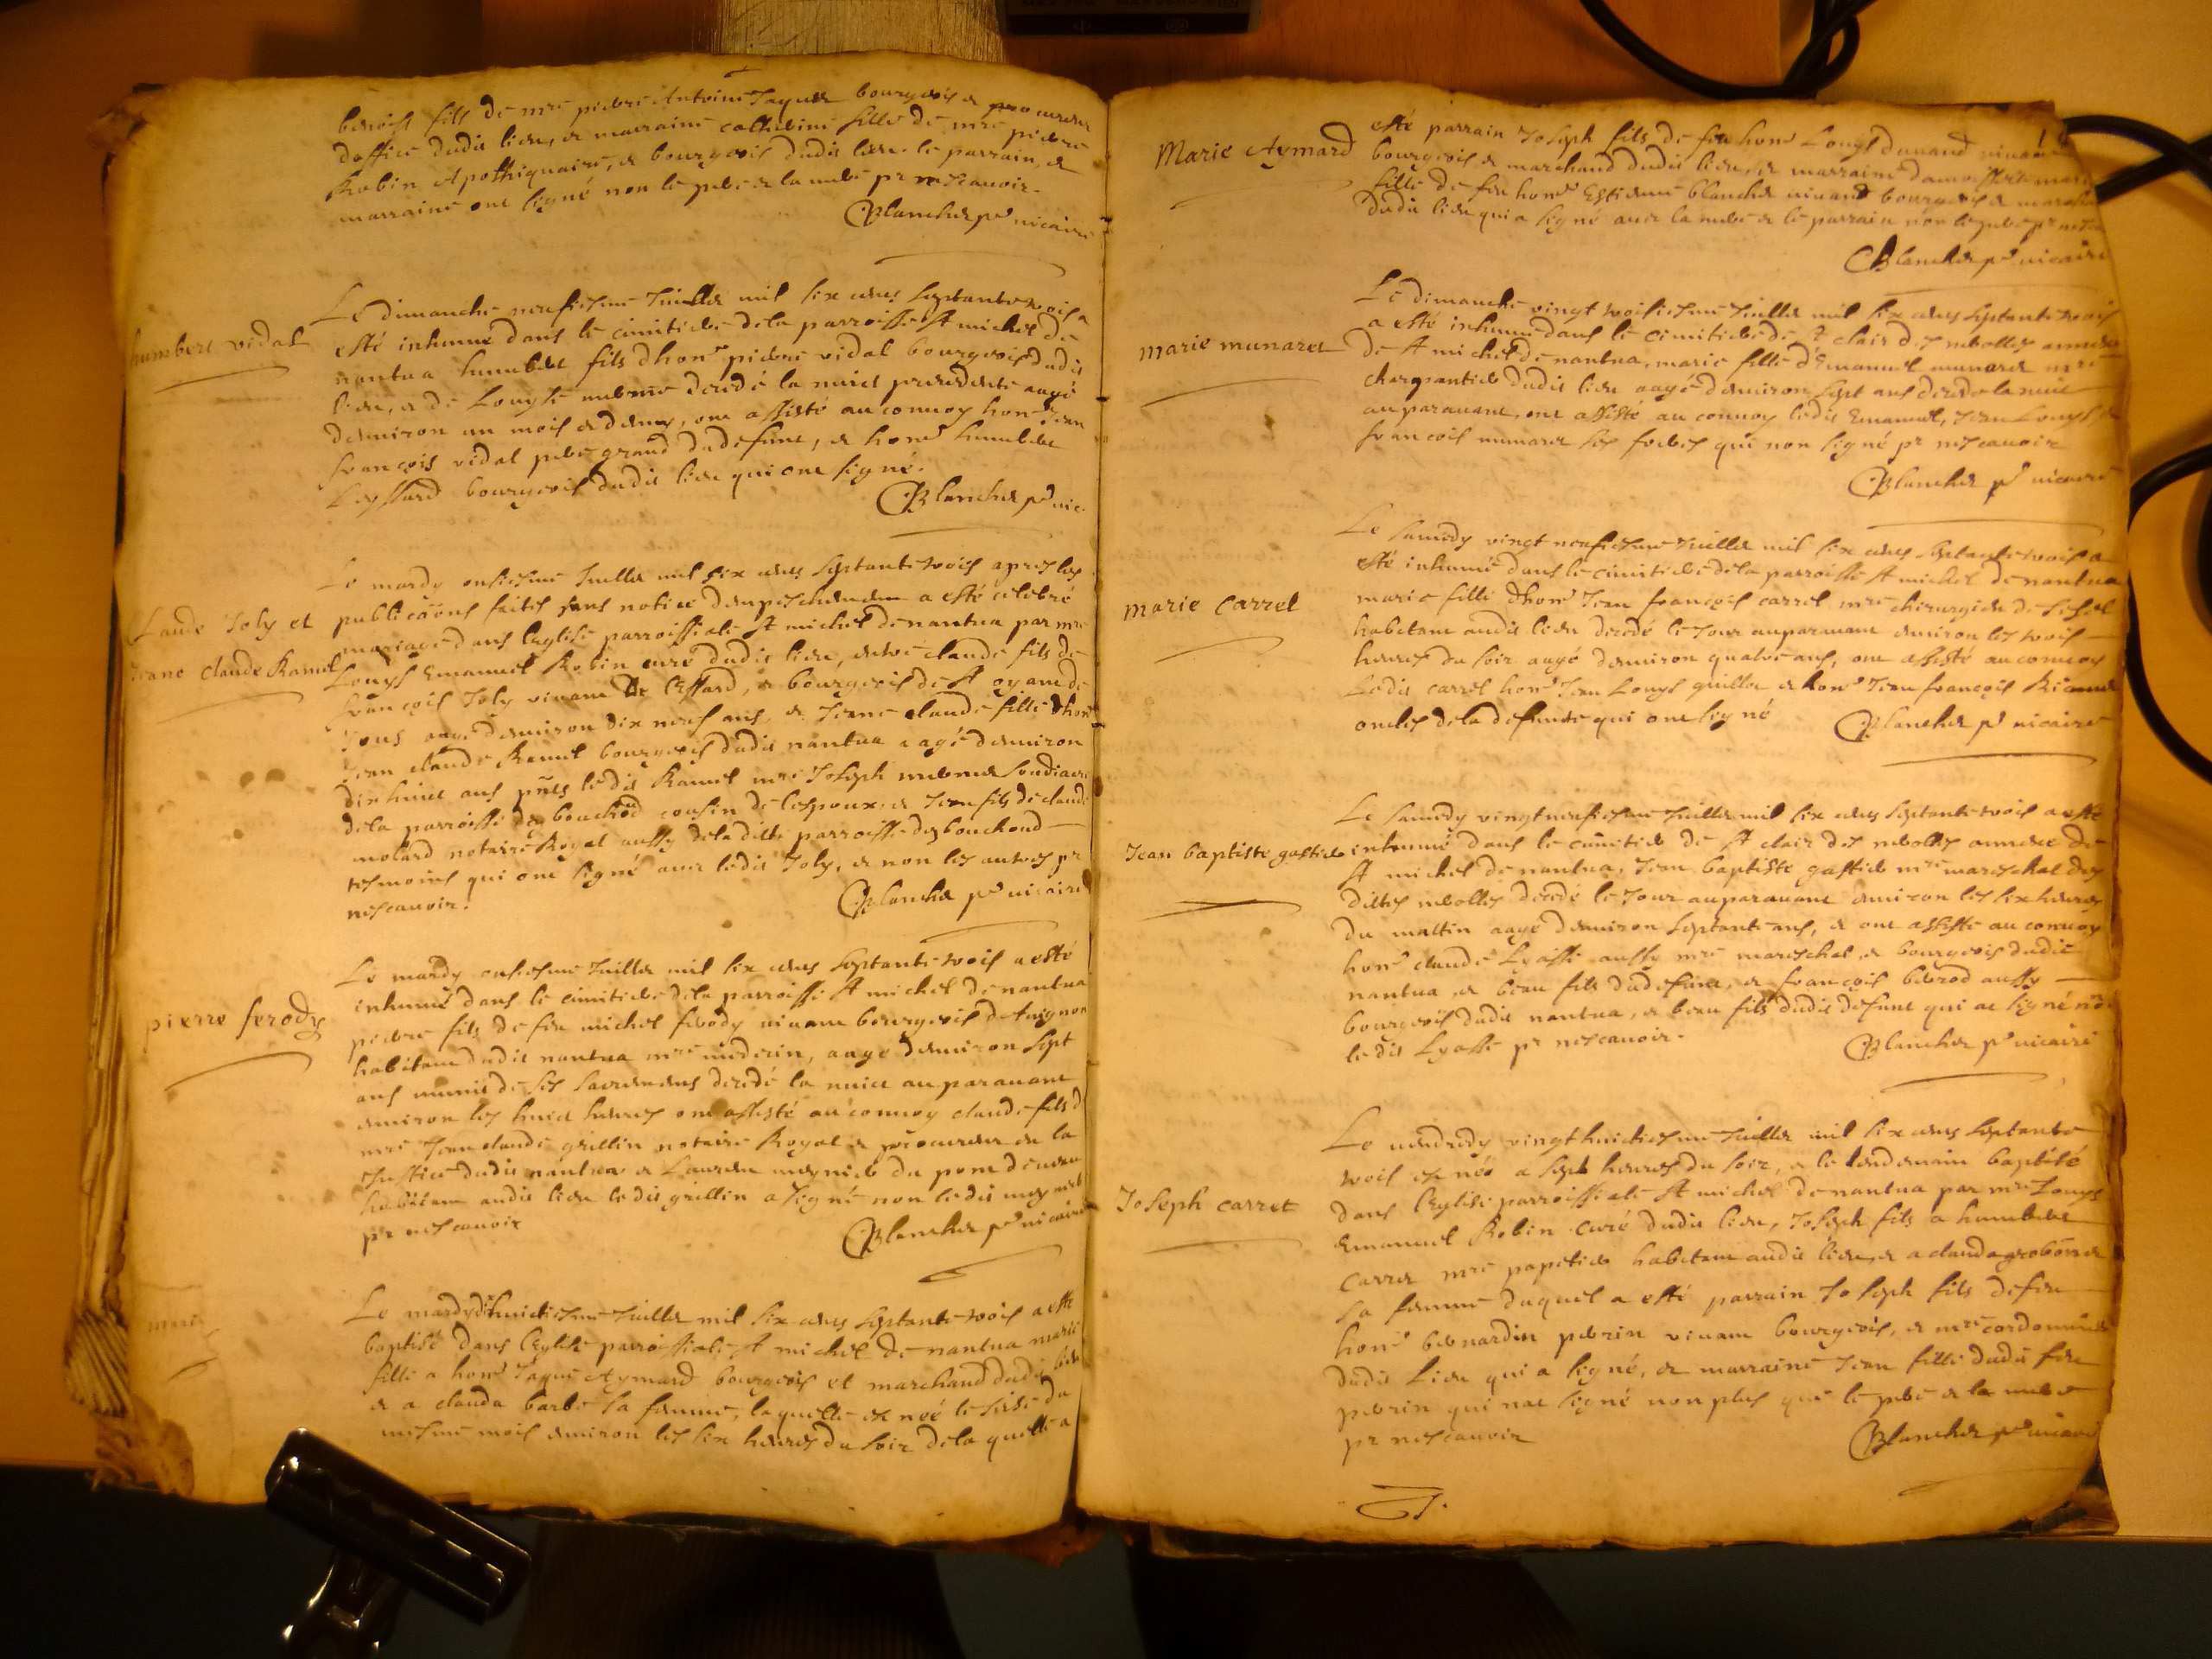 benoist fils de mre pierre Antoine Jaquet bourgeois et procureur
doffice dudit lieu, et marraine catherine fille de mre pierre
Robin Apothiquaire, et bourgeois dudit lieu. le parrain, et
marraine ont signé non le pere et la mere pr ne scavoir.
Blanchet pre vicaire
humbert vidal
Le dimanche neufiesme Juillet mil six cens septante trois a
esté inhumé dans le cimitiere de la parroisse St michel de
nantua humbert fils dhonr pierre vidal bourgeois dudit
lieu, et de Louyse decedé la nuict precedente aagé
denviron un mois et demy, ont assisté au convoy honr Jean
françois vidal pere grand du defunt, et honr humbert
bourgeois dudit lieu qui ont signé.
Blanchet pre vic.
Claude Joly et
Jeane Claude Ramel
Le mardy onsiesme Juillet mil six cens septante trois apres les
publicaõns faites sans notice dempeschement a esté celebré
mariage dans leglise parroissiale St michel de nantua par mre
Louys Emanuel Robin curé dudit lieu, entre claude fils de
françois Joly vivant de Lessard, et bourgeois de St oyant de
Joux aagé denviron dix neuf ans, et Jeane claude fille dhonr
Jean claude Ramel bourgeois dudit nantua aagé denviron
dixhuict ans pñts ledit Ramel mre Joseph soudiacre
de la parroisse de bouchod cousin de lespoux, et Jean fils de claude
molard notaire Royal aussy de la ditte parroisse des bouchoud
tesmoins qui ont signé avec ledit Joly, et non les autres pr
ne scavoir.
Blanchet pre vicaire
pierre ferody
Le mardy onsiesme Juillet mil six cens septante trois a esté
inhumé dans le cimitiere de la parroisse St michel de nantua
pierre fils de feu michel ferody vivant bourgeois dAvignon
habitant dudit nantua mre medecin, aagé denviron sept
ans munis de ses sacremens decedé la nuict au paravant
environ les huict heures ont assisté au convoy claude fils d
mre Jean claude grillin notaire Royal et procureur en la
Justice dudit nantua et Laurent meynier du pont de
habitant audit lieu ledit grillin a signé non ledit meynier
pr ne scavoir
Blanchet pre vicaire
marie
Le mardy dixhuictiesme Juillet mil six cens septante trois a esté
baptisé dans leglise parroissiale St michel de nantua marie
fille a honr Jaque Aymard bourgeois et marchand dudit lieu
et a clauda barbe sa femme, laquelle est née le seise du
mesme mois environ les six heures du soir de laquelle a
Marie Aymard
esté parrain Joseph fils de feu honr Louys vivant
bourgeois et marchand dudit lieu, et marraine damoiselle marie
fille de feu honr Estienne blanchet vivant bourgeois et marchand
dudit lieu qui a signé avec la mere et le parrain non le pere pr ne
Blanchet pre vicaire
marie munaret
Le dimanche vingt troisiesme Juillet mil six cens septante trois
a esté inhumé dans le cimitiere de St clair des neolles annexe
de St michel de nantua, marie fille dEmanuel munaret mre
charpantier dudit lieu aagé denviron sept ans decedé la nuict
auparavant, ont assisté au convoy ledit Emanuel, Jean Louys et
françois munaret ses freres qui non signé pr ne scavoir
Blanchet pre vicaire
marie carrel
Le samedy vingt neufiesme Juillet mil six cens septante trois a
esté inhumé dans le cimitiere de la parroisse St michel de nantua
marie fille dhonr Jean françois carrel mre chirurgien de
habitant audit lieu decedé le Jour auparavant environ les trois
heures du soir aagé denviron quatre ans, ont assisté au convoy
Ledit carrel honr Jean Louys guillot et honr Jean françois
oncles de la defunte qui ont signé
Blanchet pre vicaire
Jean baptiste gastier
Le samedy vingt neufiesme Juillet mil six cens septante trois a esté
inhumé dans le cimitier de St clair des neolles annexe de
St michel de nantua, Jean baptiste gastier mre mareschal des
dittes neolles decedé le Jour auparavant environ les six heures
du mattin aagé denviron septante ans, et ont assisté au convoy
honr claude Lyasse aussy mre mareschal et bourgeois dudit
nantua et beau fils du defunt, et françois berod aussy
bourgeois dudit nantua, et beau fils dudit defunt qui at signé non
ledit Lyasse pr ne scavoir.
Blanchet pre vicaire
Joseph carret
Le vendredy vingthuictiesme Juillet mil six cens septante
trois est néé a sept heures du soir, et le lendemain baptisé
dans leglise parroissiale St michel de nantua par mre Louys
Emanuel Robin curé dudit lieu, Joseph fils a humbert
Carret mre papetier habitant audit lieu, et a clauda
sa femme duquel a esté parrain Joseph fils de feu
honr bernardin perrin vivant bourgeois, et mre cordonnier
dudit Lieu qui a signé, et marraine Jean fille dudit feu
perrin qui nat signé non plus que le pere et la mere
pr ne scavoir
Blanchet pre vicaire